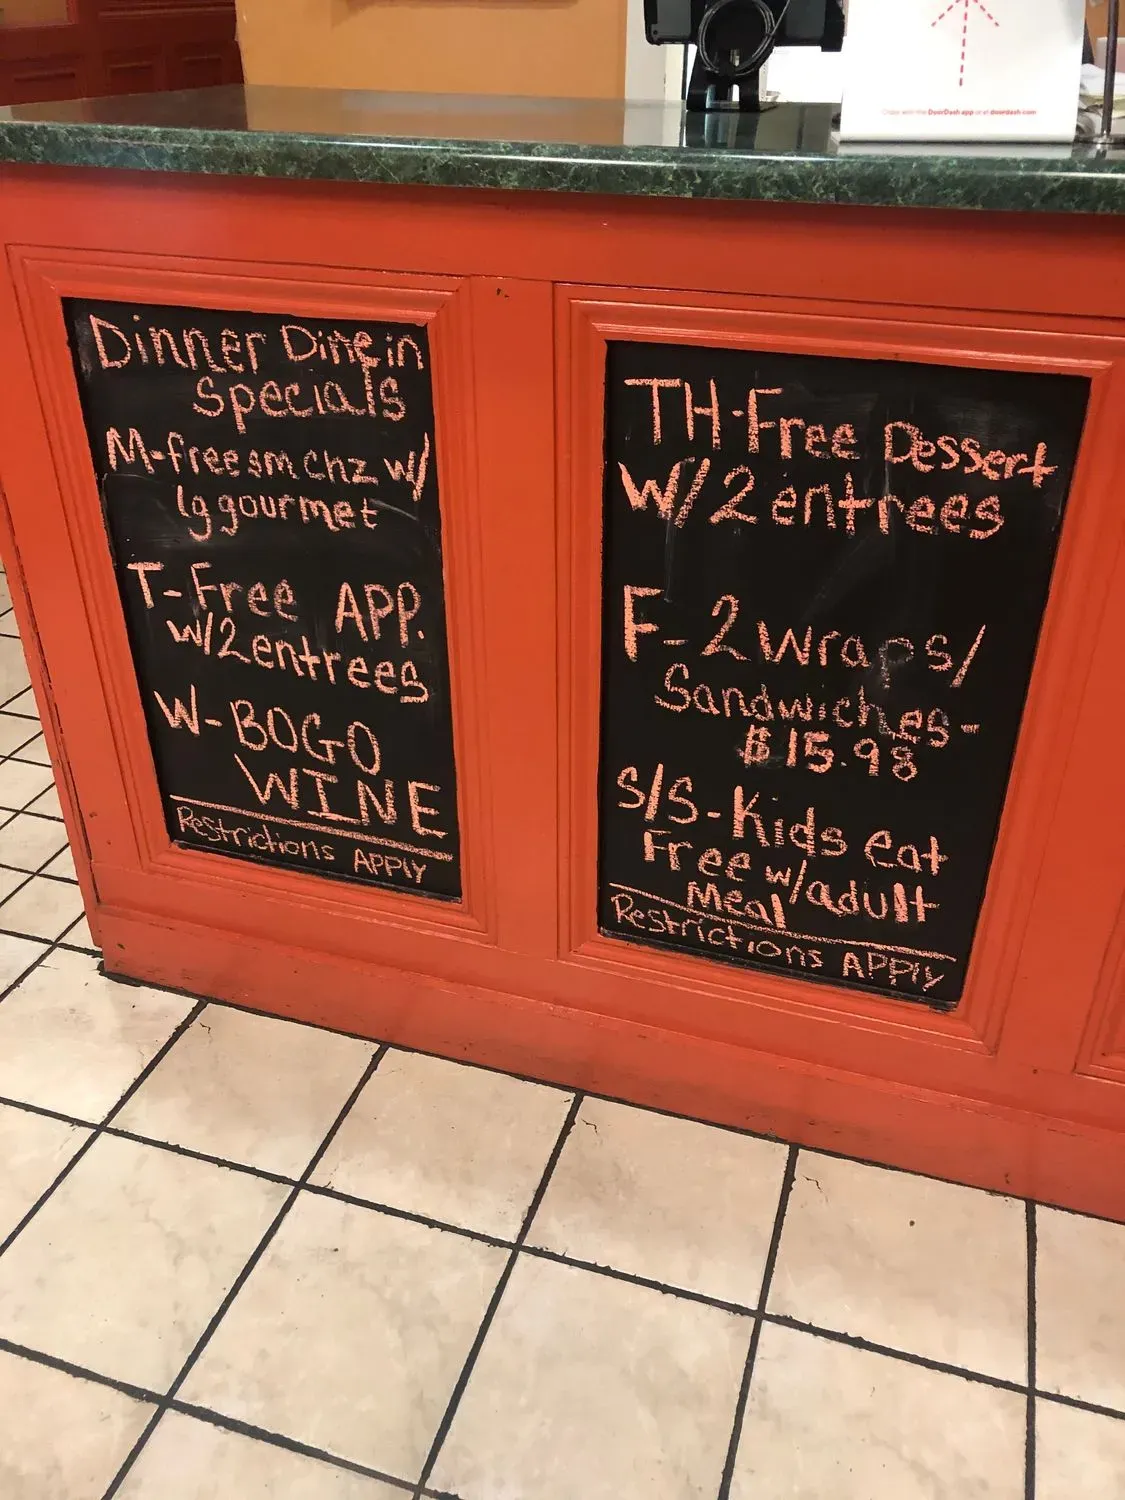 Order with the DoorDash app or at doordash.com
Dinner Dine in
Specials
M-free sm chz w/
lg gourmet
T-Free APP.
w/2 entrees
W-BOGO
WINE
Restrictions APPLY
TH-Free Dessert
W/2 entrees
F-2 wraps/
Sandwiches-
$15.98
S/S-Kids eat
Free w/adult
Meal
Restrictions APPly